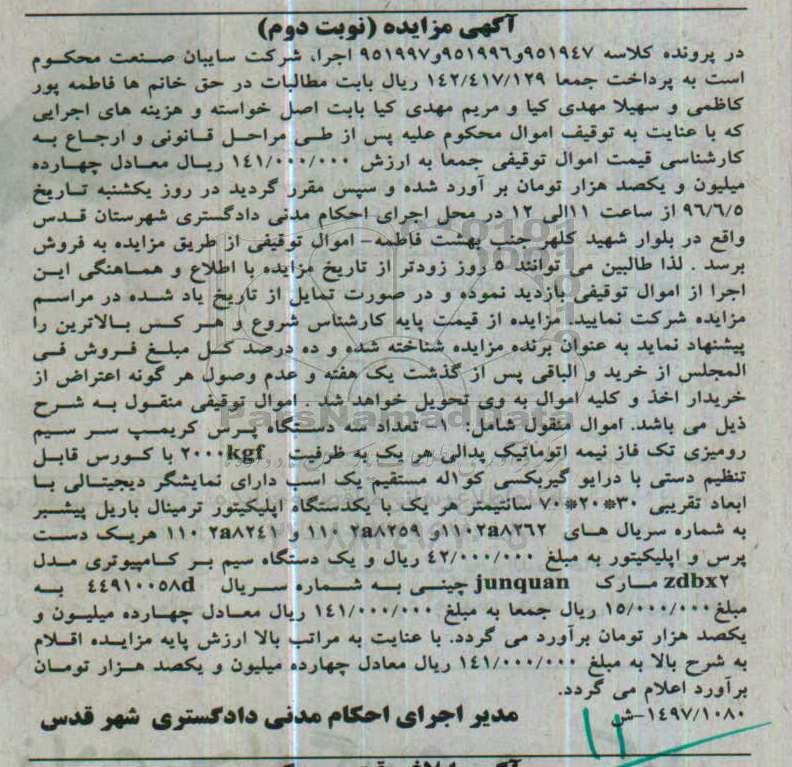 آگهی مزایده (نوبت دوم)
در پرونده کلاسه ۹۵۱۹۴۷و۹۵۱۹۹۶و۹۵۱۹۹۷ اجرا، شرکت سایبان صنعت محکوم
است به پرداخت جمعا ۱۴۲/۴۱۷/۱۲۹ ریال بابت مطالبات در حق خانم ها فاطمه پور
کاظمی و سهیلا مهدی کیا و مریم مهدی کیا بابت اصل خواسته و هزینه های اجرایی
که با عنایت به توقیف اموال محکوم علیه پس از طی مراحل قانونی و ارجاع به
کارشناسی قیمت اموال توقیفی جمعا به ارزش ۱۴۱/۰۰۰/۰۰۰ ریال معادل چهارده
میلیون و یکصد هزار تومان بر آورد شده و سپس مقرر گردید در روز یکشنبه تاریخ
۹۶/۶/۵ از ساعت ۱۱الی ۱۲ در محل اجرای احکام مدنی دادگستری شهرستان قدس
واقع در بلوار شهید کلهر جنب بهشت فاطمه- اموال توقیفی از طریق مزایده به فروش
برسد . لذا طالبین می توانند ۵ روز زودتر از تاریخ مزایده با اطلاع و هماهنگی این
اجرا از اموال توقیفی بازدید نموده و در صورت تمایل از تاریخ یاد شده در مراسم
مزایده شرکت نمایید. مزایده از قیمت پایه کارشناس شروع و هر کس بالاترین را
پیشنهاد نماید به عنوان برنده مزایده شناخته شده و ده درصد کل مبلغ فروش فی
المجلس از خرید و الباقی پس از گذشت یک هفته و عدم وصول هر گونه اعتراض از
خریدار اخذ و کلیه اموال به وی تحویل خواهد شد . اموال توقیفی منقول به شرح
ذیل می باشد. اموال منقول شامل: ۱- تعداد سه دستگاه پرس کریمپ سر سیم
رومیزی تک فاز نیمه اتوماتیک پدالی هر یک به ظرفیت ۲۰۰۰kgf با کورس قابل
تنظیم دستی با درایو گیربکسی کو۱له مستقیم یک اسب دارای نمایشگر دیجیتالی با
ابعاد تقریبی ۳۰*۲۰*۷۰ سانتیمتر هر یک با یکدستگاه اپلیکیتور ترمینال باریل پیشبر
به شماره سریال های ۱۱۰۲a۸۲۶۲و ۱۱۰ ۲a۸۲۵۹ و ۱۱۰ ۲a۸۲۴۱ هریک دست
پرس و اپلیکیتور به مبلغ ۴۲/۰۰۰/۰۰۰ ریال و یک دستگاه سیم بر کامپیوتری مدل
zdbx۲ مارک junquan چینی به شماره سریال ۴۴۹۱۰۰۵۸d به
مبلغ ۱۵/۰۰۰/۰۰۰ ریال جمعا به مبلغ ۱۴۱/۰۰۰/۰۰۰ ریال معادل چهارده میلیون و
یکصد هزار تومان برآورد می گردد. با عنایت به مراتب بالا ارزش پایه مزایده اقلام
به شرح بالا به مبلغ ۱۴۱/۰۰۰/۰۰۰ ریال معادل چهارده میلیون و یکصد هزار تومان
برآورد اعلام می گردد.
۱۴۹۷/۱۰۸۰-ش مدیر اجرای احکام مدنی دادگستری شهر قدس
۱۱
ParsNamadData